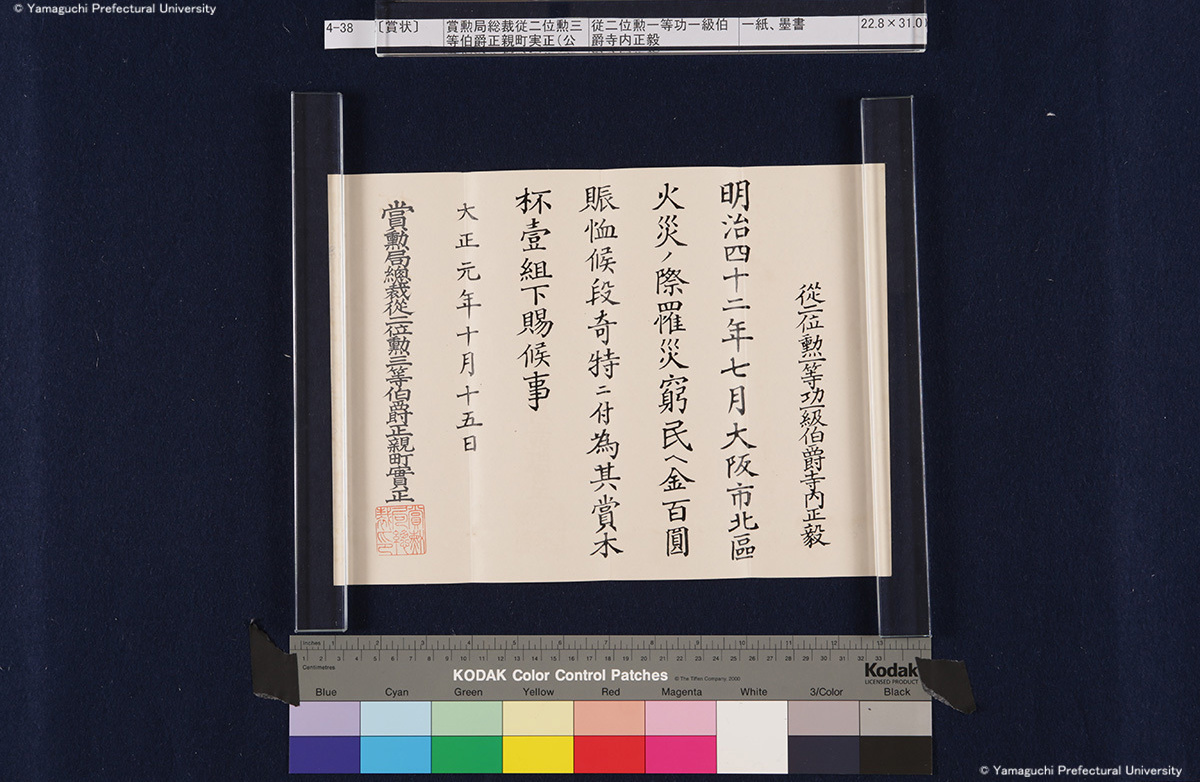 © Yamaguchi Prefectural University
4-38
〔賞状〕
賞勲局総裁従二位勲三
等伯爵正親町実正(公
従二位勲一等功一級伯
爵寺内正毅
一紙、墨書
22.8×31.0
從二位勲一等功一級伯爵寺内正毅
明治四十二年七月大阪市北區
火災ノ際罹災窮民ヘ金百圓
賑恤候段奇特ニ付為其賞木
杯壹組下賜候事
大正元年十月十五日
賞勲局總裁從二位勲三等伯爵正親町實正
賞勲局総裁之印
Inches 1 2 3 4 5 6 7 8 9 10 11 12 13
1 2 3 4 5 6 7 8 9 10 11 12 13 14 15 16 17 18 19 20 21 22 23 24 25 26 27 28 29 30 31 32 33
Centimetres
KODAK Color Control Patches © The Tiffen Company, 2000
Kodak
LICENSED PRODUCT
Blue Cyan Green Yellow Red Magenta White 3/Color Black
© Yamaguchi Prefectural University